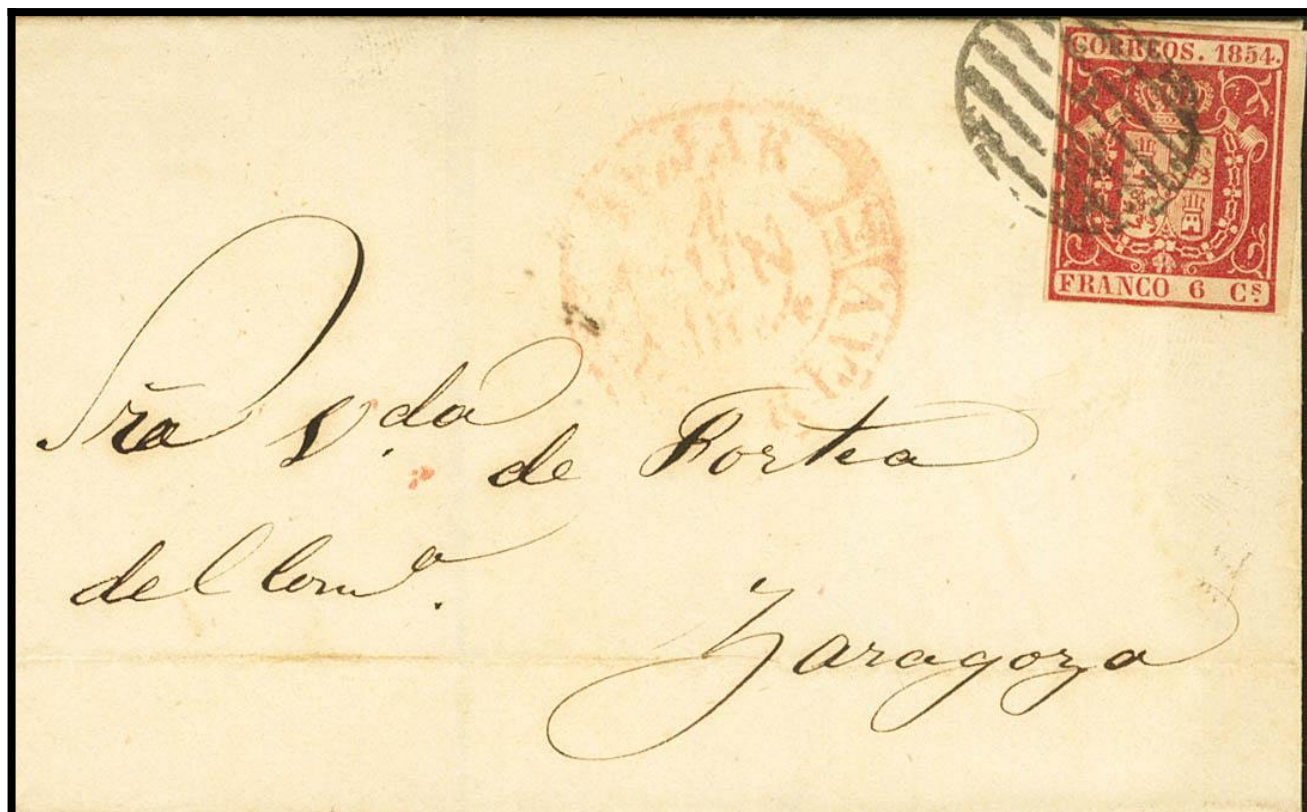 CORREOS. 1854.
FRANCO 6 Cs.
Sra. Vda de Fortea
del Como.
Zaragoza